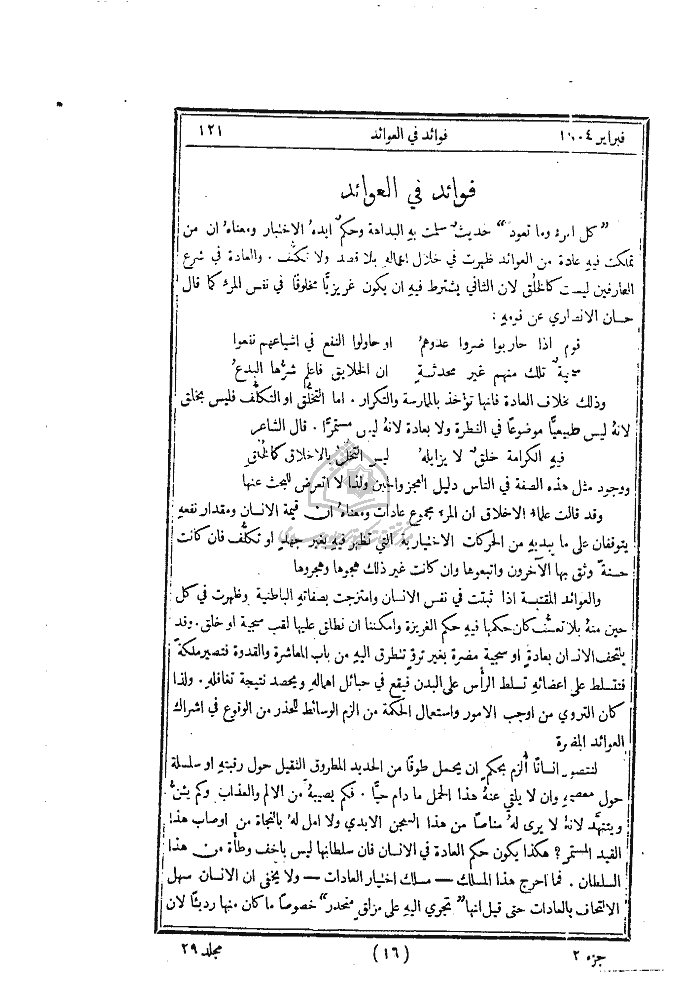 فبراير ١٩٠٤ فوائد في العوائد ١٢١
فوائد في العوائد
”كل امرءٍ وما تعود“ حديثٌ سلمت بهِ البداهة وحكمٌ ايدهُ الاختبار ومعناهُ ان من
تملكت فيهِ عادة من العوائد ظهرت في خلال اعمالهِ بلا قصد ولا تكلُّف . والعادة في شرع
العارفين ليست كالخُلق لان الثاني يشترط فيهِ ان يكون غريزيًّا مخلوقًا في نفس المرءِ كما قال
حسان الانصاري عن قومهِ :
قوم اذا حاربوا ضروا عدوهمُ او حاولوا النفع في اشياعهم نفعوا
سجيةٌ تلك منهم غير محدثةٍ ان الخلايق فاعلم شرُّها البدعُ
وذلك بخلاف العادة فانها تؤخذ بالممارسة والتكرار . اما التخلُّق او التكلُّف فليس بخلق
لانهُ ليس طبيعيًّا موضوعًا في الفطرة ولا بعادة لانهُ ليس مستمرًّا . قال الشاعر
فيهِ الكرامة خلقٌ لا يزايلهُ ليس التخلق بالاخلاق كالخُلقِ
ووجود مثل هذه الصفة في الناس دليل العجز والجبن ولذا لا اتعرض للبحث عنها
وقد قالت علماء الاخلاق ان المرءَ مجموع عادات ومعناهُ ان قيمة الانسان ومقدار نفعهِ
يتوقفان على ما يبديهِ من الحركات الاختيارية التي تظهر فيهِ بغير جهدٍ او تكلُّف فان كانت
حسنةً وثق بها الآخرون واتبعوها وان كانت غير ذلك مجوها وهجروها
والعوائد المقتبسة اذا ثبتت في نفس الانسان وامتزجت بصفاتهِ الباطنية وظهرت في كل
حين منهُ بلا تعسُّف كان حكمها فيهِ حكم الغريزة وامكننا ان نطلق عليها لقب سجية او خلق . وقد
يلتحف الانسان بعادةٍ او سجية مضرة بغير تروٍّ تتطرق اليهِ من باب المعاشرة والقدوة فتصير ملكةً
فتتسلط على اعضائهِ تسلط الرأس على البدن فيقع في حبائل اهمالهِ ويحصد نتيجة تغافلهِ . ولذا
كان التروي من اوجب الامور واستعمال الحكمة من الزم الوسائط للحذر من الوقوع في اشراك
العوائد المضرة
لنتصور انسانًا أُلزم بحكمٍ ان يحمل طوقًا من الحديد المطروق الثقيل حول رقبتهِ او سلسلة
حول معصمهِ وان لا يلقي عنهُ هذا الحمل ما دام حيًّا . فكم يصيبهُ من الالم والعذاب وكم يئنُّ
ويتنهَّد لانهُ لا يرى لهُ مناصًا من هذا السجن الابدي ولا امل لهُ بالنجاة من اوصاب هذا
القيد المستمر ? هكذا يكون حكم العادة في الانسان فان سلطانها ليس باخف وطأة من هذا
السلطان . فما احرج هذا المسلك — مسلك اختيار العادات — ولا يخفى ان الانسان سهل
الالتحاف بالعادات حتى قيل انها ”تجري اليهِ على مزلقٍ منحدر“ خصوصًا ما كان منها رديئًا لان
جزء ٢ (١٦) مجلد ٢٩